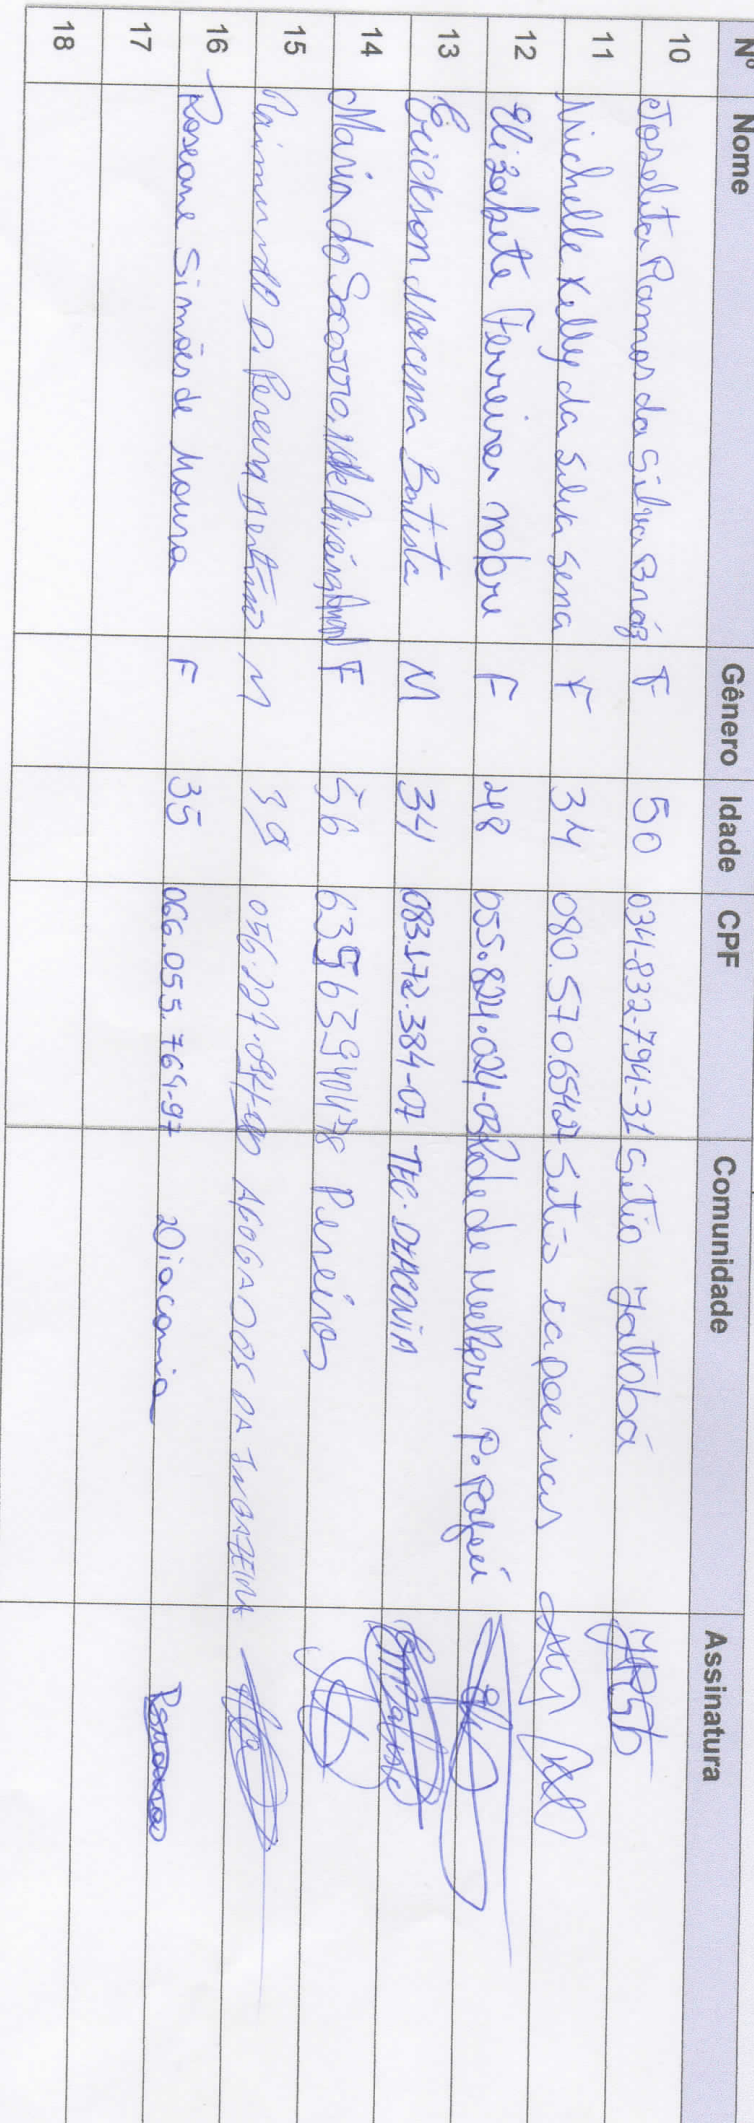 Nº Nome Gênero Idade CPF Comunidade Assinatura
10 Joselita Ramos da Silva Bráz F 50 034-832-794-31 Sítio Jatobá
11 Michelle Kelly da Silva Sena F 34 080.570.654 Sitio capoeiras
12 Elizabete Ferreira nobre F 48 055.824.024-03 Rede de Mulheres P. Pajeú
13 Erickson Macena Batista M 34 083.572.384-07 TEC. DIACONIA
14 Maria do Socorro F 56 63963940478 Pereiros
15 Raimundo P. Pereira M 39 AFOGADOS DA INGAZEIRA
16 Roseane Simões de Moura F 35 066.055.764-97 Diaconia
17
18